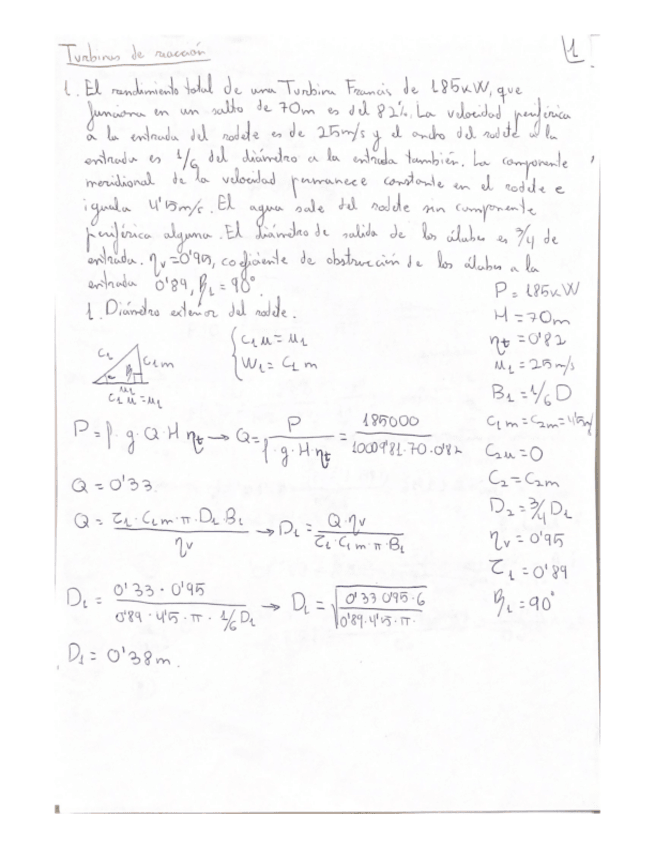 Turbinas de reacción
1
1. El rendimiento total de una Turbina Francis de 185kW, que
funciona en un salto de 70m es del 82%. La velocidad periférica
a la entrada del rodete es de 25m/s y el ancho del rodete a la
entrada es 1/6 del diámetro a la entrada también. La componente
meridional de la velocidad permanece constante en el rodete e
iguala 4'5m/s. El agua sale del rodete sin componente
periférica alguna. El diámetro de salida de los álabes es 3/4 de
entrada. ηv=0'95, coeficiente de obstrucción de los álabes a la
entrada 0'89, β1=90°
1. Diámetro exterior del rodete.
P=185kW
H=70m
ηt=0'82
u1=25m/s
B1=1/6 D
c1m=c2m=4'5m/s
c2u=0
c2=c2m
D2=3/4 D1
ηv=0'95
τ1=0'89
β1=90°
c1 c1m
β1
u1
c1u=u1
{ c1u=u1
W1=c1m
P=ρ·g·Q·H ηt → Q= P / ρ·g·H ηt = 185000 / 1000·9'81·70·0'82
Q=0'33.
Q= τ1·c1m·π·D1·B1 / ηv → D1= Q·ηv / τ1·c1m·π·B1
D1= 0'33·0'95 / 0'89·4'5·π·1/6D1 → D1=√ 0'33·0'95·6 / 0'89·4'5·π·
D1=0'38m.